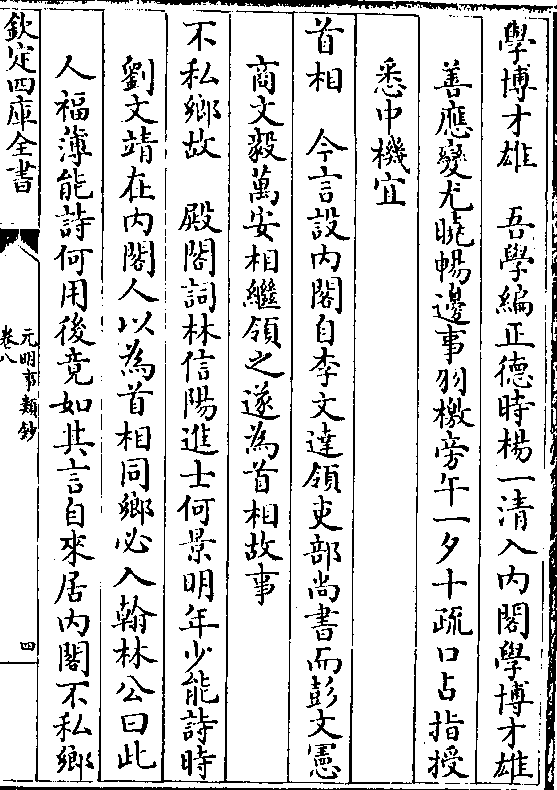 學博才雄　吾學編正德時楊一清入內閣學博才雄
善應變尤曉暢邊事羽檄旁午一夕十疏口占指授
悉中機宜
首相　今言設內閣自李文達領吏部尚書而彭文憲
商文毅萬安相繼領之遂為首相故事
不私鄉故　殿閣詞林信陽進士何景明年少能詩時
劉文靖在內閣人以為首相同鄉必入翰林公曰此
人福薄能詩何用後竟如其言自來居內閣不私鄉
欽定四庫全書
元明事類鈔
卷八
四